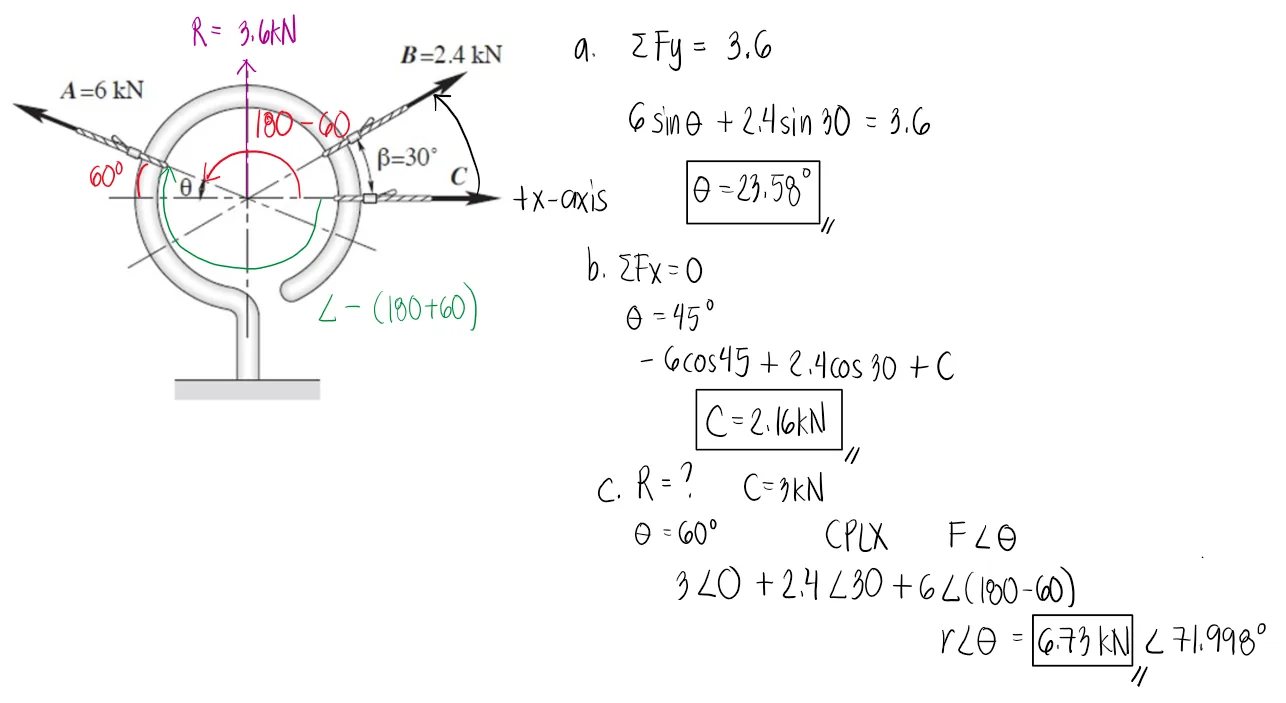 R = 3.6kN
A=6 kN
B=2.4 kN
180-60
60°
θ
β=30°
C
+x-axis
∠-(180+60)
a. ΣFy = 3.6
6sinθ + 2.4sin30 = 3.6
θ = 23.58°
b. ΣFx = 0
θ = 45°
-6cos45 + 2.4cos30 + C
C = 2.16kN
c. R = ? C = 3kN
θ = 60° CPLX F∠θ
3∠0 + 2.4∠30 + 6∠(180-60)
r∠θ = 6.73 kN ∠ 71.998°